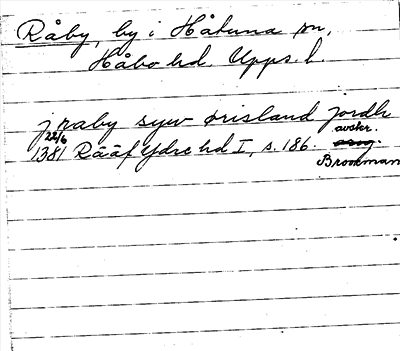 Råby, by i Håtuna sn,
Håbo hd. Upps. l.
j raby syw ørisland jordh
22/6 avskr.
1381 Rääf Ydre hd I, s. 186.
Broocman